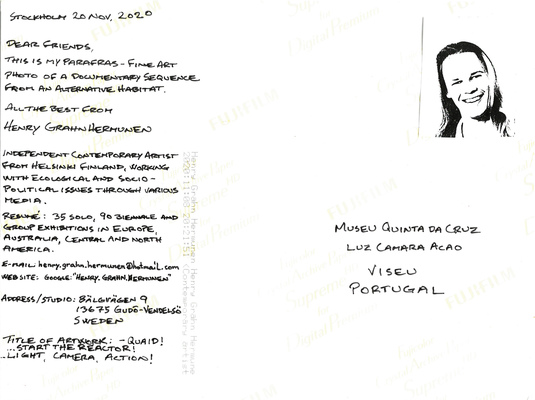 STOCKHOLM 20 NOV, 2020
DEAR FRIENDS,
THIS IS MY PARAFRAS - FINE ART
PHOTO OF A DOCUMENTARY SEQUENCE
FROM AN ALTERNATIVE HABITAT.
ALL THE BEST FROM
HENRY GRAHN HERMUNEN
INDEPENDENT CONTEMPORARY ARTIST
FROM HELSINKI FINLAND, WORKING
WITH ECOLOGICAL AND SOCIO-
POLITICAL ISSUES THROUGH VARIOUS
MEDIA.
RESUMÉ: 35 SOLO, 90 BIENNALE AND
GROUP EXHIBITIONS IN EUROPE,
AUSTRALIA, CENTRAL AND NORTH
AMERICA.
E-MAIL: henry.grahn.hermunen@hotmail.com
WEBSITE: GOOGLE: "HENRY, GRAHN, HERMUNEN"
ADDRESS/STUDIO: BÄLGVÄGEN 9
13675 GUDÖ-VENDELSÖ
SWEDEN
TITLE OF ARTWORK: - QUAID!
...START THE REACTOR!
...LIGHT, CAMERA, ACTION!
Henry Grahn Hermunen Henry Grahn Hermune
Contemporary artist
MUSEU QUINTA DA CRUZ
LUZ CAMARA ACAO
VISEU
PORTUGAL
FUJIFILM